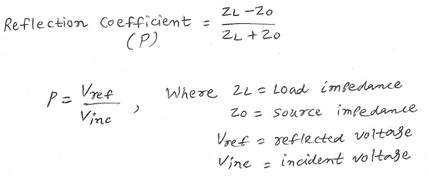 Reflection Coefficient = ZL - Zo / ZL + Zo
(P)
P = Vref / Vinc , Where ZL = Load impedance
Zo = source impedance
Vref = reflected voltage
Vinc = incident voltage